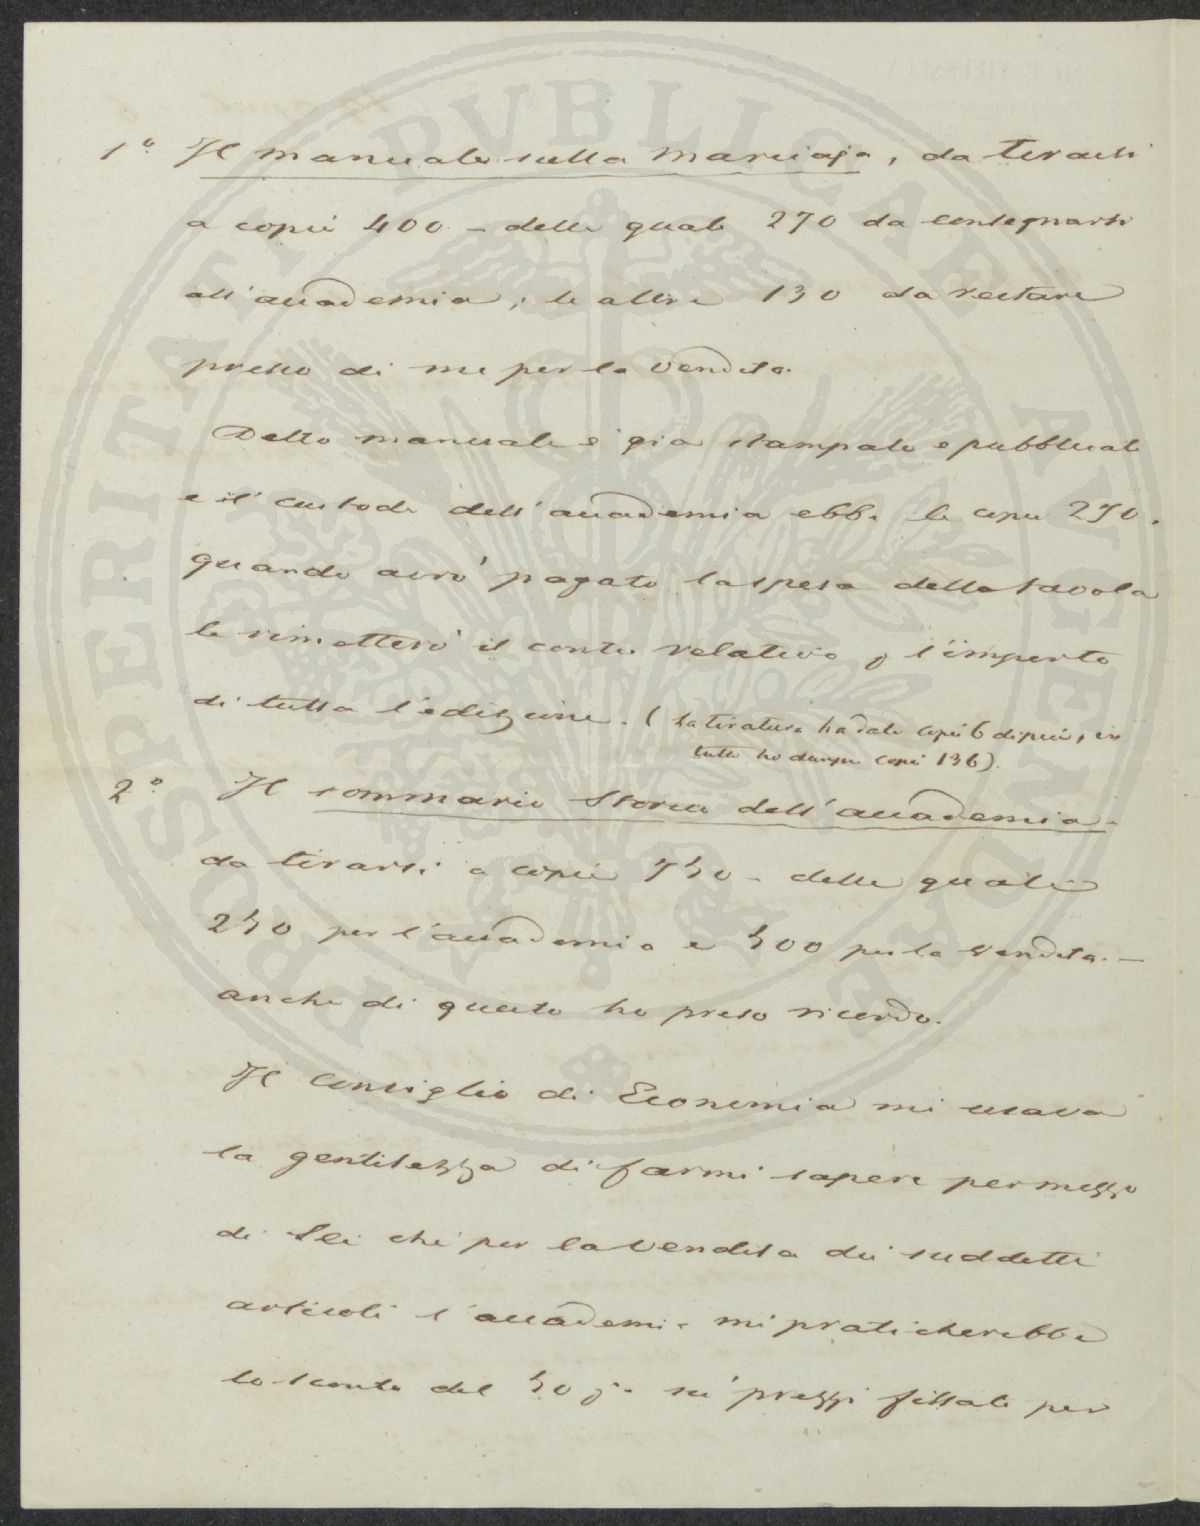 1º. Il manuale sulla marciaja, da tirarsi
a copie 400 – delle quali 270 da consegnarsi
all'accademia; le altre 130 da restare
presso di me per la vendita.
Detto manuale è già stampato e pubblicato
e il custode dell'accademia ebbe le copie 270.
quando avrò pagato la spesa della tavola
le rimetterò il conto relativo l'importo
di tutta l'edizione. (la tiratura ha dato copie 6 di più, in
tutto ho dunque copie 136).
2º. Il sommario Storico dell'accademia –
da tirarsi a copie 750 – delle quali
250 per l'accademia e 500 per la vendita. –
anche di questo ho preso ricordo.
Il Consiglio di Economia mi usava
la gentilezza di farmi sapere per mezzo
di Lei che per la vendita dei suddetti
articoli l'accademia mi praticherebbe
lo sconto del 50 su' prezzi fissati per
PROSPERITATI PVBLICAE AVGENDAE